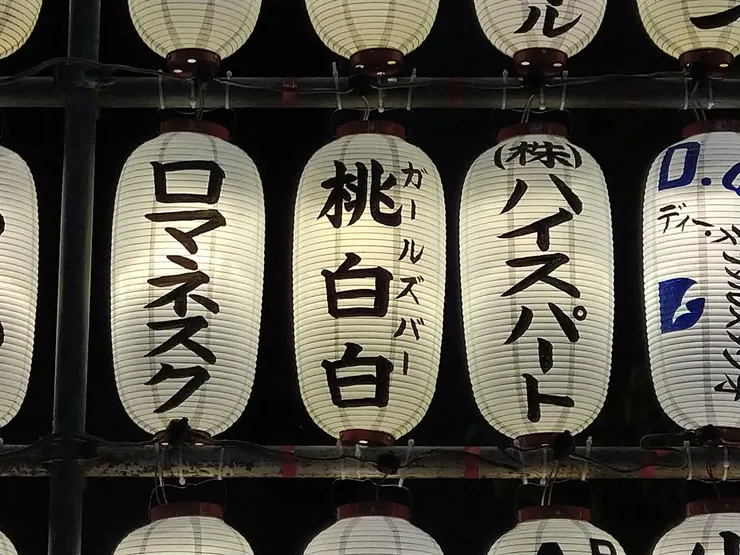 ル
ロマネスク
ガールズバー
桃白白
(株)ハイスパート
D.
ディー.